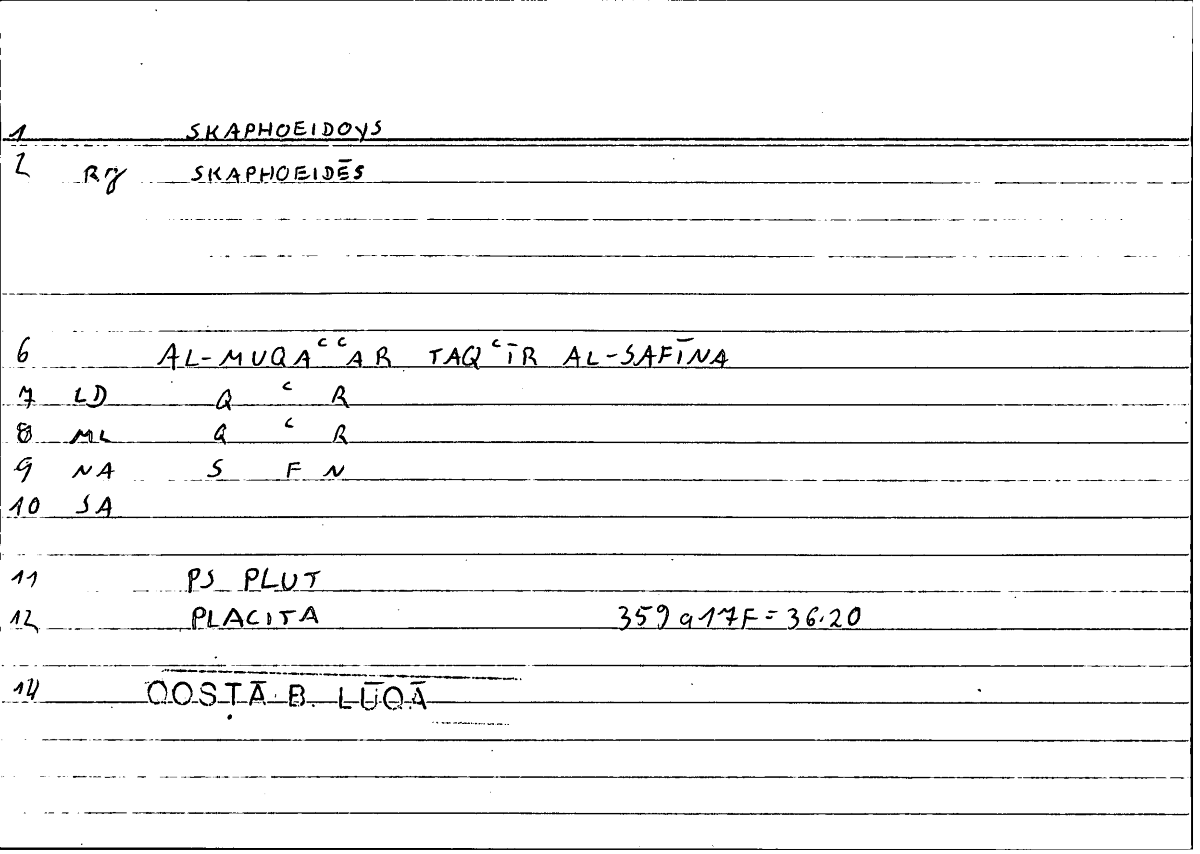 1 SKAPHOEIDOYS
2 Rg SKAPHOEIDĒS
6 AL-MUQAᶜᶜAR TAQᶜĪR AL-SAFĪNA
7 LD Q ᶜ R
8 ML Q ᶜ R
9 NA S F N
10 SA
11 PS PLUT
12 PLACITA 359a17F=36.20
14 QOSṬĀ B. LŪQĀ